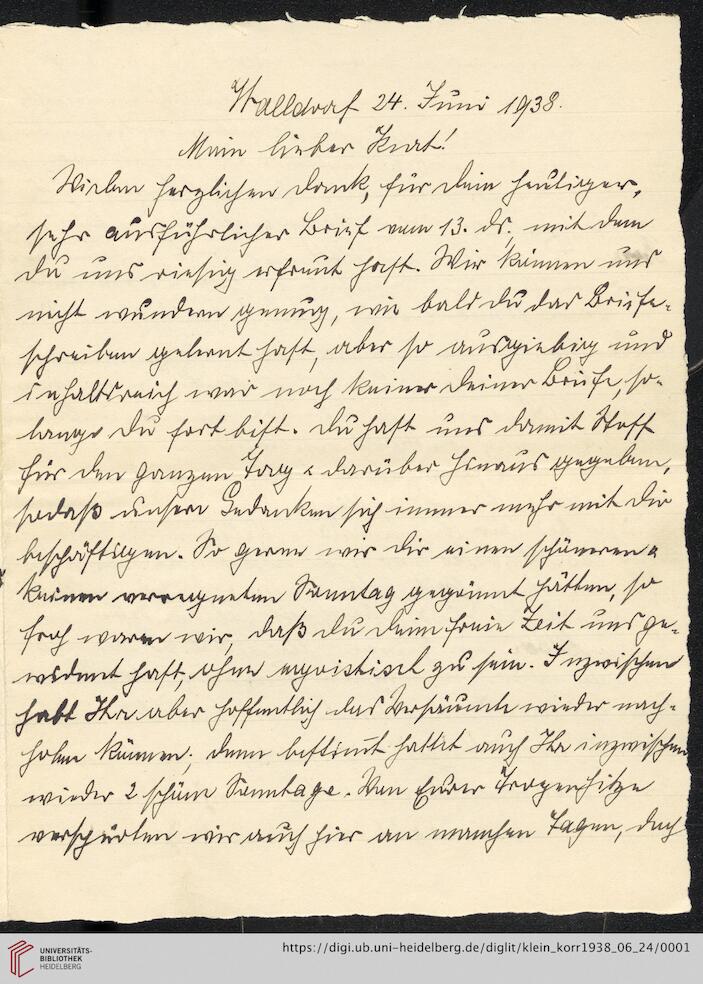 Walldorf 24. Juni 1938.
Mein lieber Kurt!
Vielen herzlichen Dank, für Dein heutiger,
sehr ausführlicher Brief vom 13. ds. mit dem
Du uns riesig erfreut hast. Wir können uns
nicht wundern genug, wie bald Du das Briefe-
schreiben gelernt hast, aber so ausgiebig und
inhaltsreich war noch keiner Deiner Briefe, so-
lange Du fort bist. Du hast uns damit Stoff
für den ganzen Tag & darüber hinaus gegeben,
sodaß unsere Gedanken sich immer mehr mit Dir
beschäftigen. So gerne wir Dir einen schöneren &
keinen verregneten Sonntag gegönnt hätten, so
froh waren wir, daß Du Deine freie Zeit uns ge-
widmet hast, ohne egoistisch zu sein. Inzwischen
habt Ihr aber hoffentlich das Versäumte wieder nach-
holen können, denn bestimmt hattet auch Ihr inzwischen
wieder 2 schöne Sonntage. Von Eurer Tropenhitze
verspürten wir auch hier an manchen Tagen, doch
UNIVERSITÄTS-
BIBLIOTHEK
HEIDELBERG
https://digi.ub.uni-heidelberg.de/diglit/klein_korr1938_06_24/0001